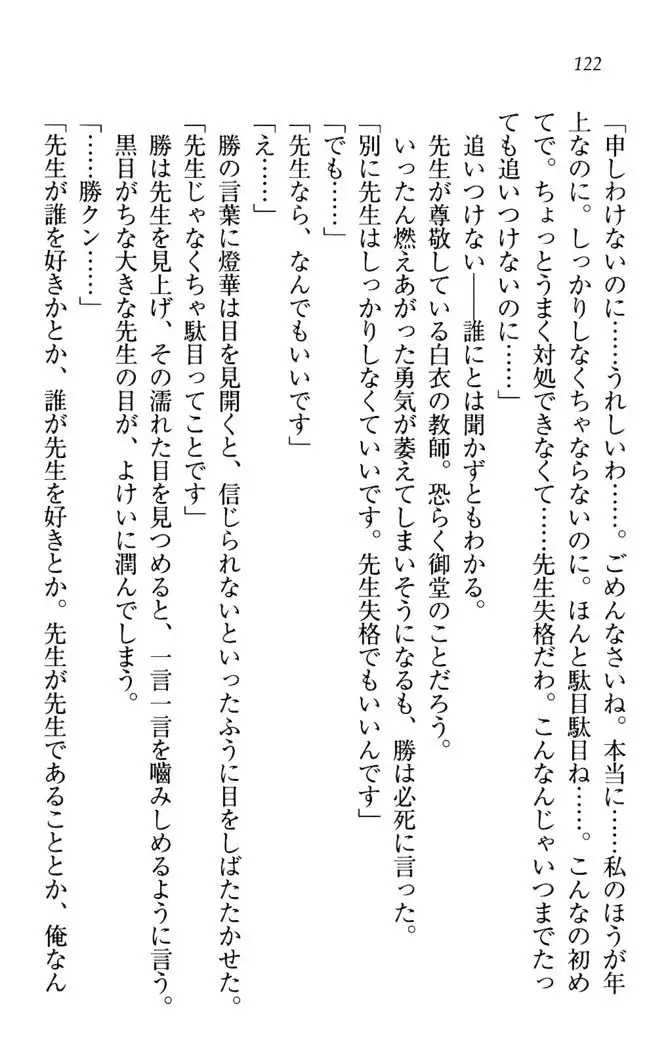 122
「申しわけないのに……うれしいわ……。ごめんなさいね。本当に……私のほうが年
上なのに。しっかりしなくちゃならないのに。ほんと駄目駄目ね……。こんなの初め
てで。ちょっとうまく対処できなくて……先生失格だわ。こんなんじゃいつまでたっ
ても追いつけないのに……」
追いつけない――誰にとは聞かずともわかる。
先生が尊敬している白衣の教師。恐らく御堂のことだろう。
いったん燃えあがった勇気が萎えてしまいそうになるも、勝は必死に言った。
「別に先生はしっかりしなくていいです。先生失格でもいいんです」
「でも……」
「先生なら、なんでもいいです」
「え……」
勝の言葉に燈華は目を見開くと、信じられないといったふうに目をしばたたかせた。
「先生じゃなくちゃ駄目ってことです」
勝は先生を見上げ、その濡れた目を見つめると、一言一言を嚙みしめるように言う。
黒目がちな大きな先生の目が、よけいに潤んでしまう。
「……勝クン……」
「先生が誰を好きかとか、誰が先生を好きとか。先生が先生であることとか、俺なん